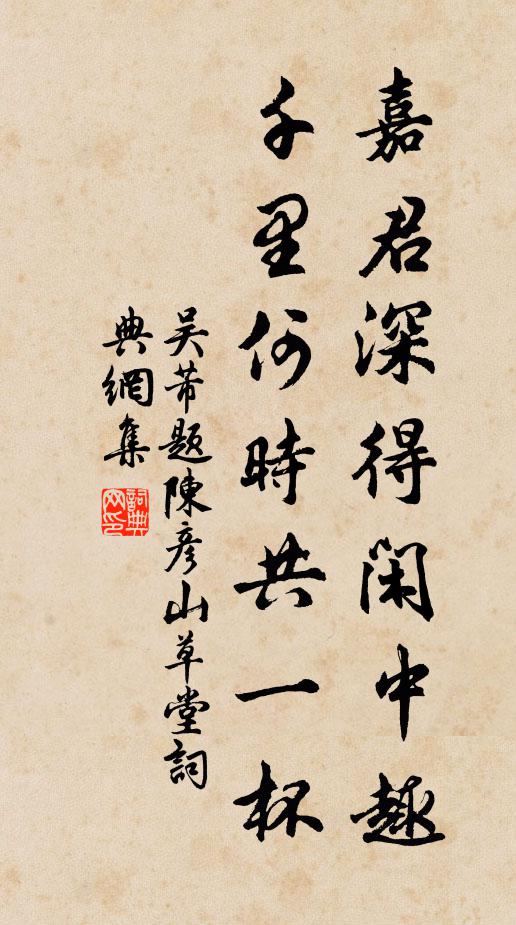 嘉君深得閑中趣
千里何時共一杯
吴芾題陳彦山草堂詞
典網集
詞典
网印